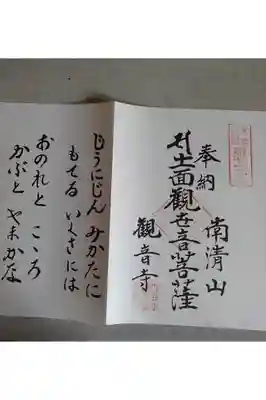 奉納
南清山
十一面觀世音菩薩
觀音寺
じうにじん みかたに
もてる いくさには
おのれと こゝろ
かぶと やまかな